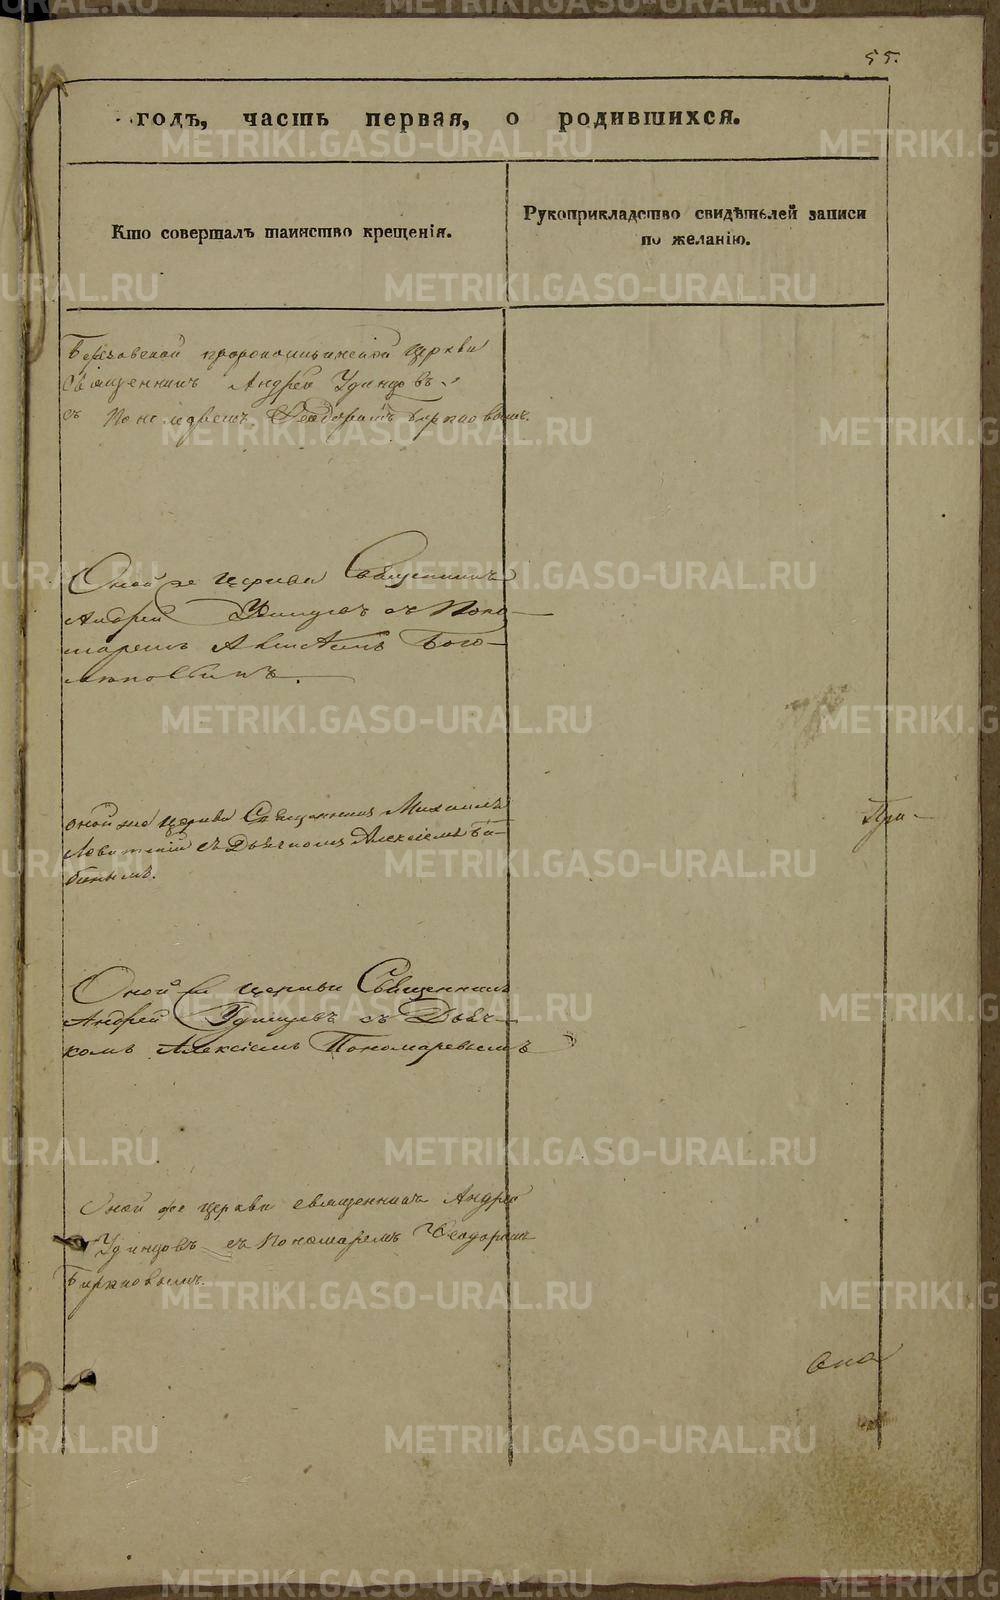 55.
годъ, часть первая, о родившихся.
Кто совершалъ таинство крещенія.
Рукоприкладство свидѣтелей записи
по желанію.
Церкви
Священникъ Андрей Удинцовъ
съ Пономаремъ Ѳеодоромъ Бирюковымъ.
Оной же церкви Священникъ
Андрей Удинцовъ съ Поно-
маремъ Бого-
оной же церкви Священникъ Михаилъ
съ Дьячкомъ Алексіемъ Ба-
бинымъ.
Оной же церкви Священникъ
Андрей Удинцовъ съ Дьяч-
комъ Алексіемъ Пономаревымъ
Оной же церкви священникъ Андрей
Удинцовъ съ Пономаремъ Ѳеодоромъ
Бирюковымъ.
METRIKI.GASO-URAL.RU